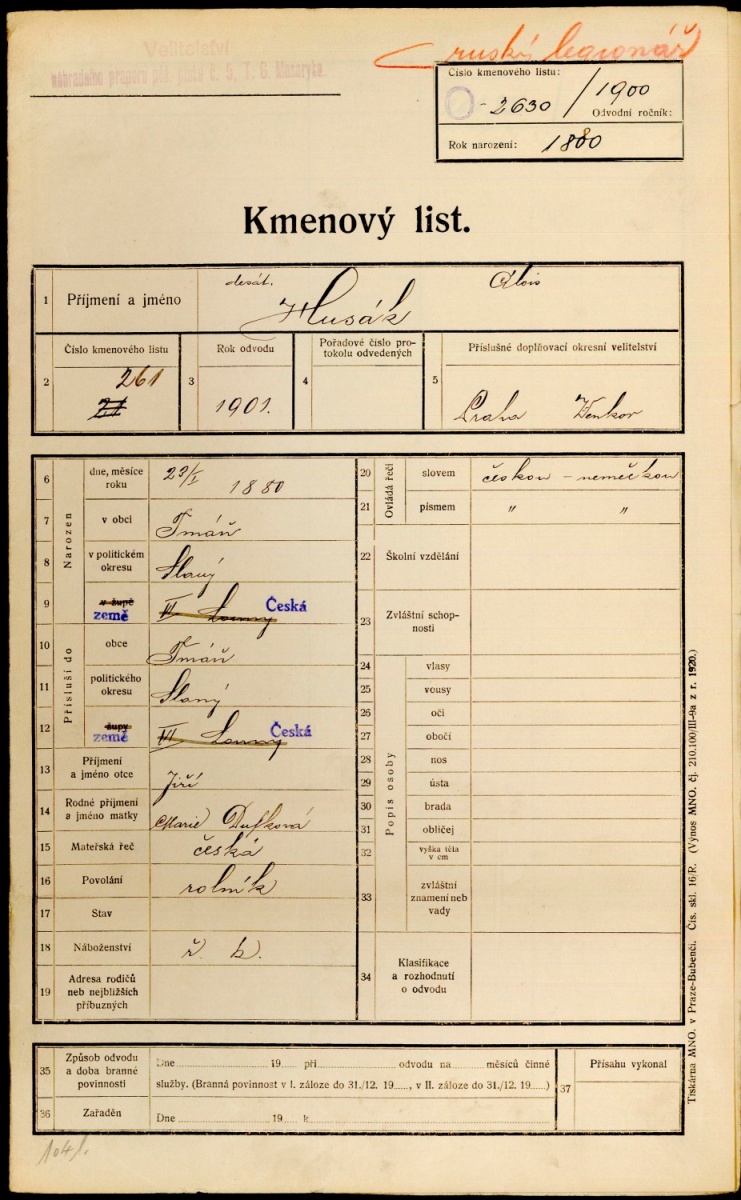 Velitelství
náhradního praporu pěš. pluku č. 5, T. G. Masaryka.
ruský legionář
Číslo kmenového listu:
0-2630 / 1900
Odvodní ročník:
Rok narození: 1880
Kmenový list.
1 Příjmení a jméno desát. Husák Alois
2 Číslo kmenového listu 261 21
3 Rok odvodu 1901.
4 Pořadové číslo pro-
tokolu odvedených
5 Příslušné doplňovací okresní velitelství
Praha Venkov
Narozen
6 dne, měsíce
roku 23/I 1880
7 v obci Tmáň
8 v politickém
okresu Slaný
9 v župě
země VI Louny Česká
Přísluší do
10 obce Tmáň
11 politického
okresu Slaný
12 župy
země VI Louny Česká
13 Příjmení
a jméno otce Jiří
14 Rodné příjmení
a jméno matky Marie Dufková
15 Mateřská řeč česká
16 Povolání rolník
17 Stav
18 Náboženství ř. k.
19 Adresa rodičů
neb nejbližších
příbuzných
Ovládá řeči
20 slovem českou - německou
21 písmem " "
22 Školní vzdělání
23 Zvláštní schop-
nosti
Popis osoby
24 vlasy
25 vousy
26 oči
27 obočí
28 nos
29 ústa
30 brada
31 obličej
32 výška těla
v cm
33 zvláštní
znamení neb
vady
34 Klasifikace
a rozhodnutí
o odvodu
35 Způsob odvodu
a doba branné
povinnosti
Dne 19 při odvodu na měsíců činné
služby. (Branná povinnost v I. záloze do 31./12. 19, v II. záloze do 31./12. 19)
36 Zařaděn
Dne 19 k
37 Přísahu vykonal
Tiskárna MNO. v Praze-Bubenči. Čís. skl. 16/R. (Výnos MNO. čj. 210.100/III-9a z r. 1920.)